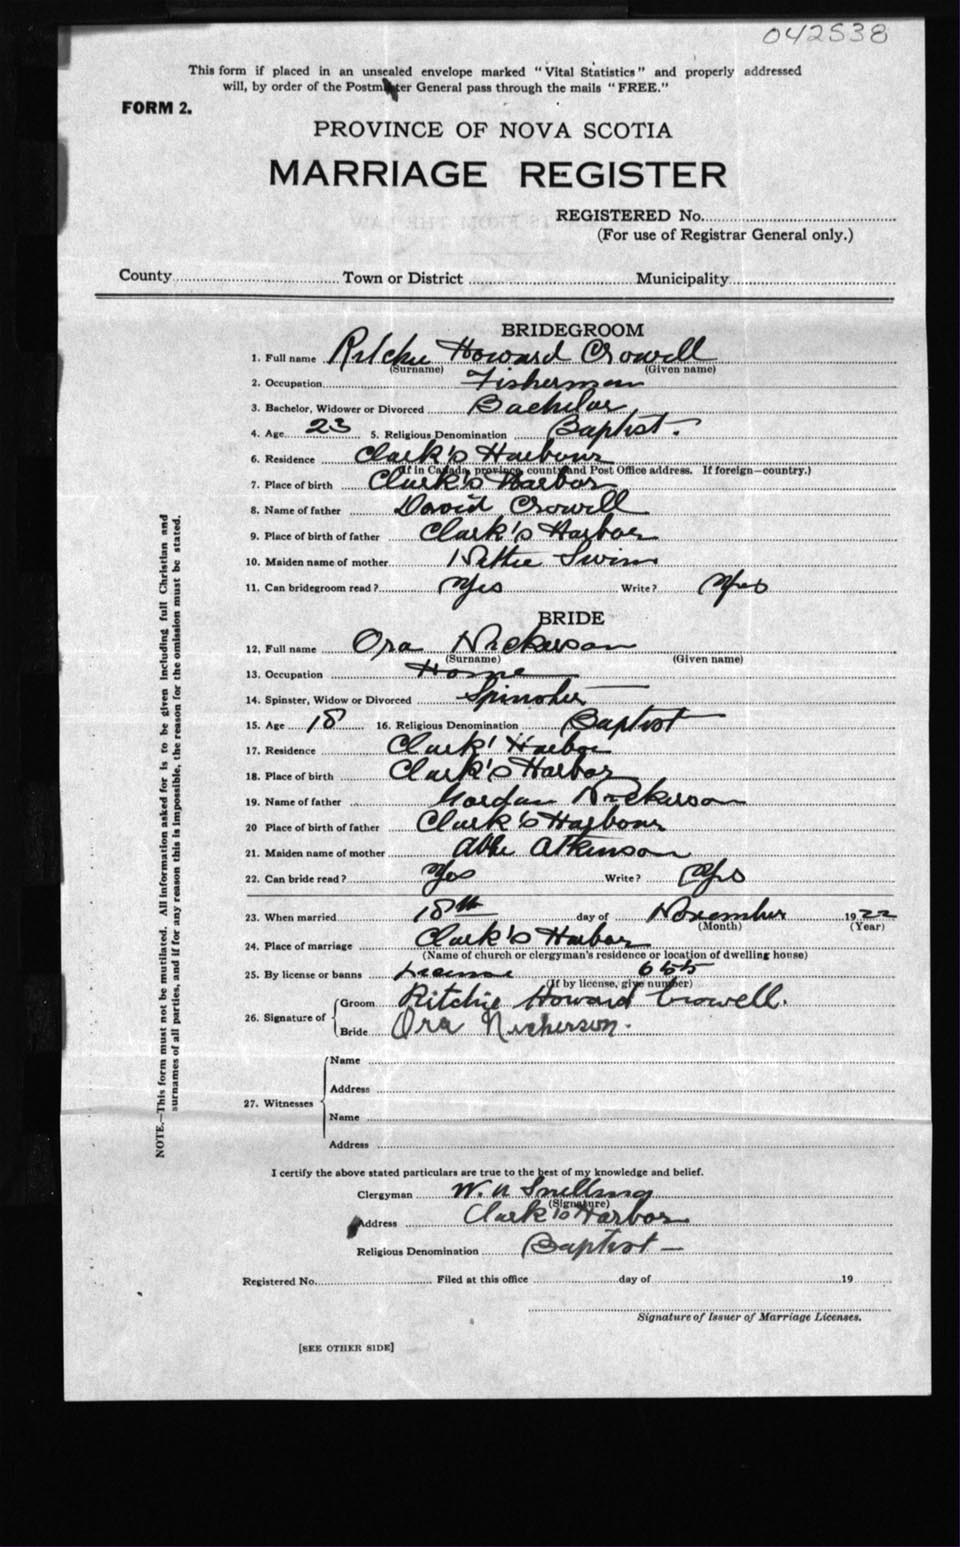 042538
This form if placed in an unsealed envelope marked "Vital Statistics" and properly addressed
will, by order of the Postmaster General pass through the mails "FREE."
FORM 2.
PROVINCE OF NOVA SCOTIA
MARRIAGE REGISTER
REGISTERED No.
(For use of Registrar General only.)
County Town or District Municipality
BRIDEGROOM
1. Full name Ritchie Howard Crowell
(Surname) (Given name)
2. Occupation Fisherman
3. Bachelor, Widower or Divorced Bachelor
4. Age 23 5. Religious Denomination Baptist.
6. Residence Clark's Harbour
(If in Canada, province, county and Post Office address. If foreign—country.)
7. Place of birth Clark's Harbor
8. Name of father David Crowell
9. Place of birth of father Clark's Harbor
10. Maiden name of mother Nettie Swim
11. Can bridegroom read? Yes Write? Yes
BRIDE
12. Full name Ora Nickerson
(Surname) (Given name)
13. Occupation Home
14. Spinster, Widow or Divorced Spinster
15. Age 18 16. Religious Denomination Baptist
17. Residence Clark' Harbor
18. Place of birth Clark's Harbor
19. Name of father Gordan Nickerson
20 Place of birth of father Clark's Harbour
21. Maiden name of mother Abbe Atkinson
22. Can bride read? Yes Write? Yes
23. When married 18th day of November 1922
(Month) (Year)
24. Place of marriage Clark's Harbor
(Name of church or clergyman's residence or location of dwelling house)
25. By license or banns License 655
(If by license, give number)
26. Signature of Groom Ritchie Howard Crowell.
Bride Ora Nickerson.
27. Witnesses
Name
Address
Name
Address
I certify the above stated particulars are true to the best of my knowledge and belief.
Clergyman W. A Snelling
(Signature)
Address Clark's Harbor
Religious Denomination Baptist —
Registered No. Filed at this office day of 19
Signature of Issuer of Marriage Licenses.
[SEE OTHER SIDE]
NOTE.—This form must not be mutilated. All information asked for is to be given including full Christian and
surnames of all parties, and if for any reason this is impossible, the reason for the omission must be stated.